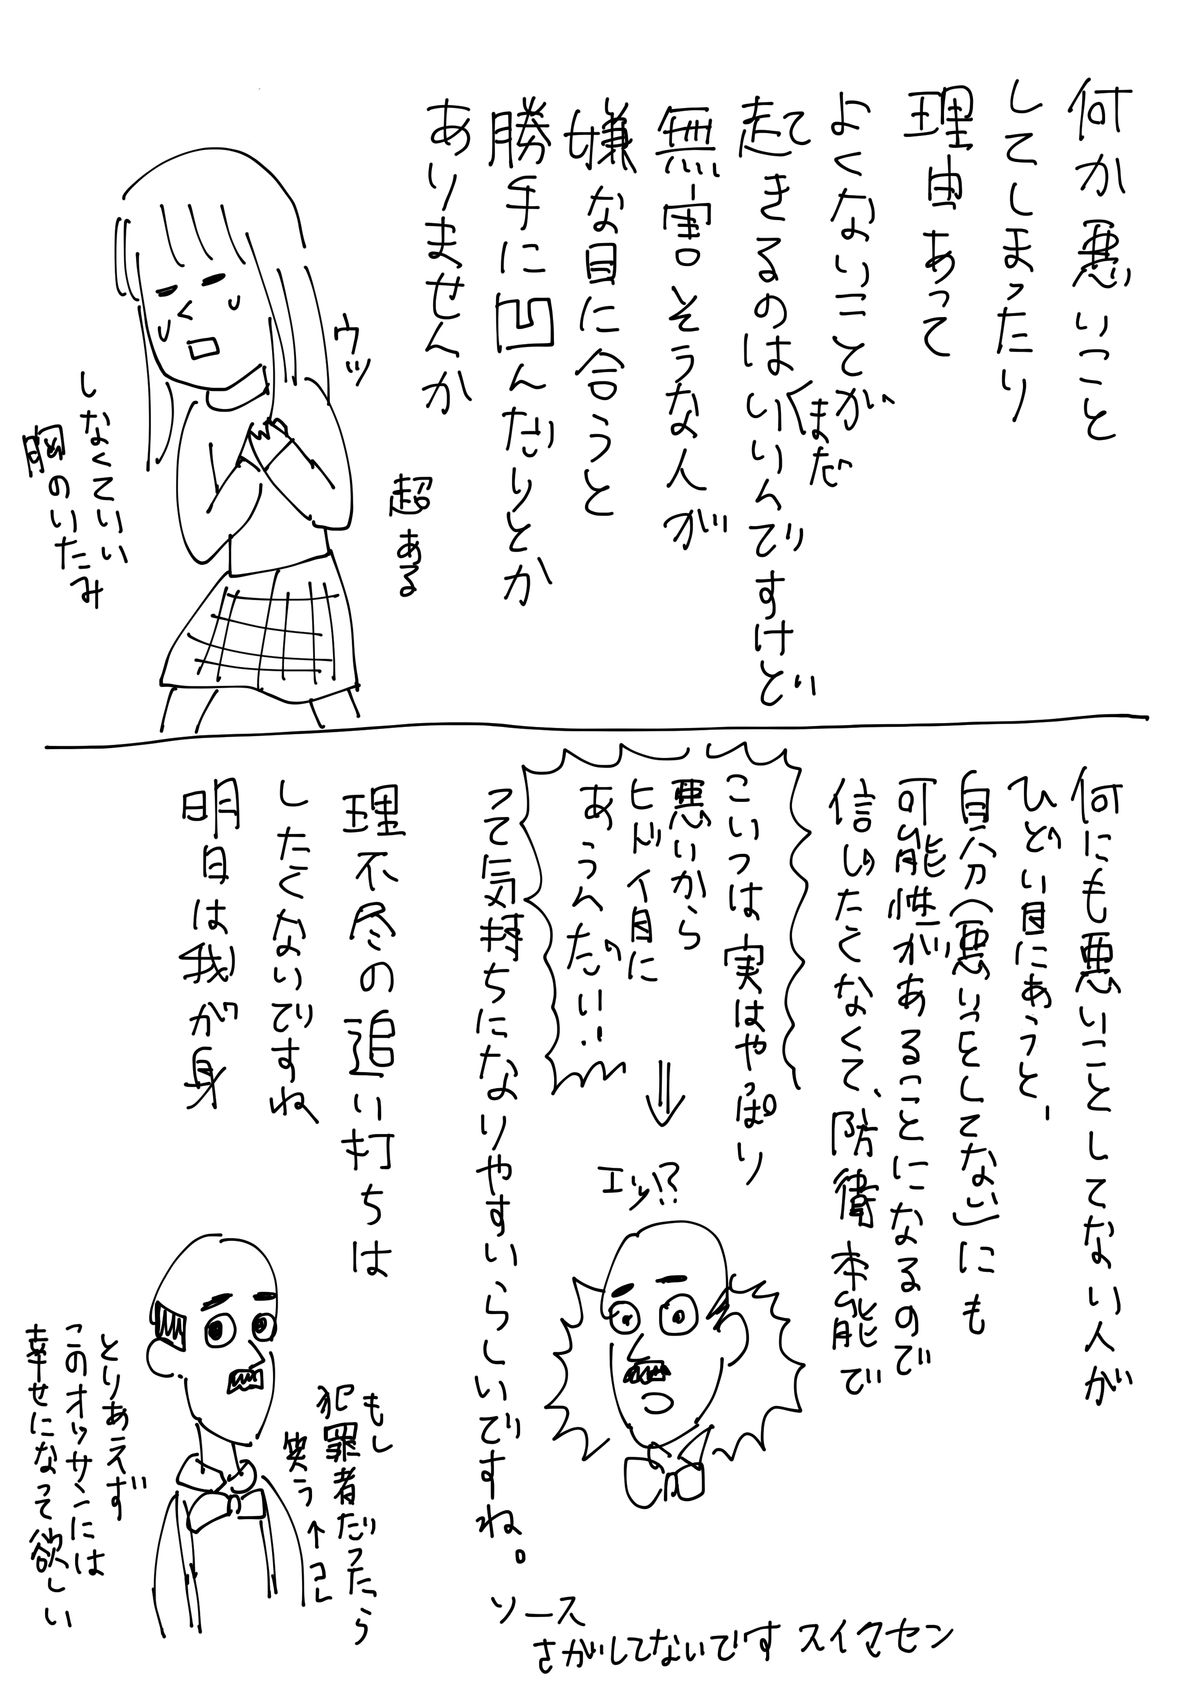 何か悪いこと
してしまったり
理由あって
よくないことが
起きて
起きるのは(まだ)いいんですけど
無害そうな人が
嫌な目に合うと
勝手に凹んだりとか
ありませんか
超ある
ウッ
しなくていい
胸のいたみ
何にも悪いことしてない人が
ひどい目にあうと、
自分(悪いことをしてない)にも
可能性があることになるので
信じたくなくて、防衛本能で
こいつは実はやっぱり
悪いから
ヒドイ目に
あうんだい!!
⇓
エッ!?
って気持ちになりやすいらしいですね。
ソース
さがしてないです スイマセン
理不尽の追い打ちは
したくないですね
明日は我が身
もし
犯罪者だったら
笑う ↑コレ
とりあえず
このオッサンには
幸せになって欲しい